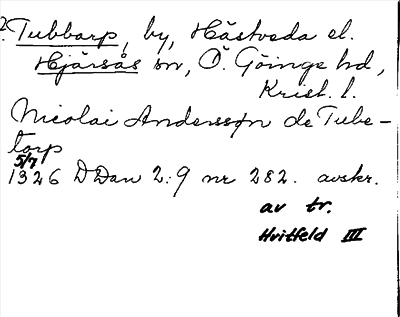 2. Tubbarp, by, Hästveda el.
Hjärsås sn, Ö. Göinge hd,
Krist. l.
Nicolai Anderssøn de Tube-
torp
5/7
1326 DDan 2:9 nr 282. avskr.
av tr.
Hvitfeld III